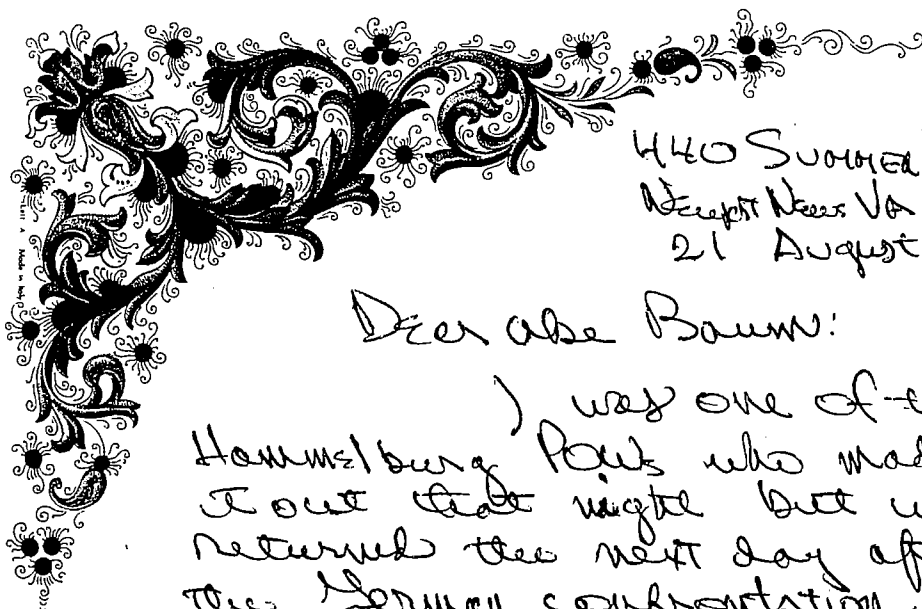 440 SUMMER
Newport News VA
21 August
Dear Abe Baum:
I was one of t
Hammelburg POWs who mad
it out that night but w
returned the next day aft
the German confrontation